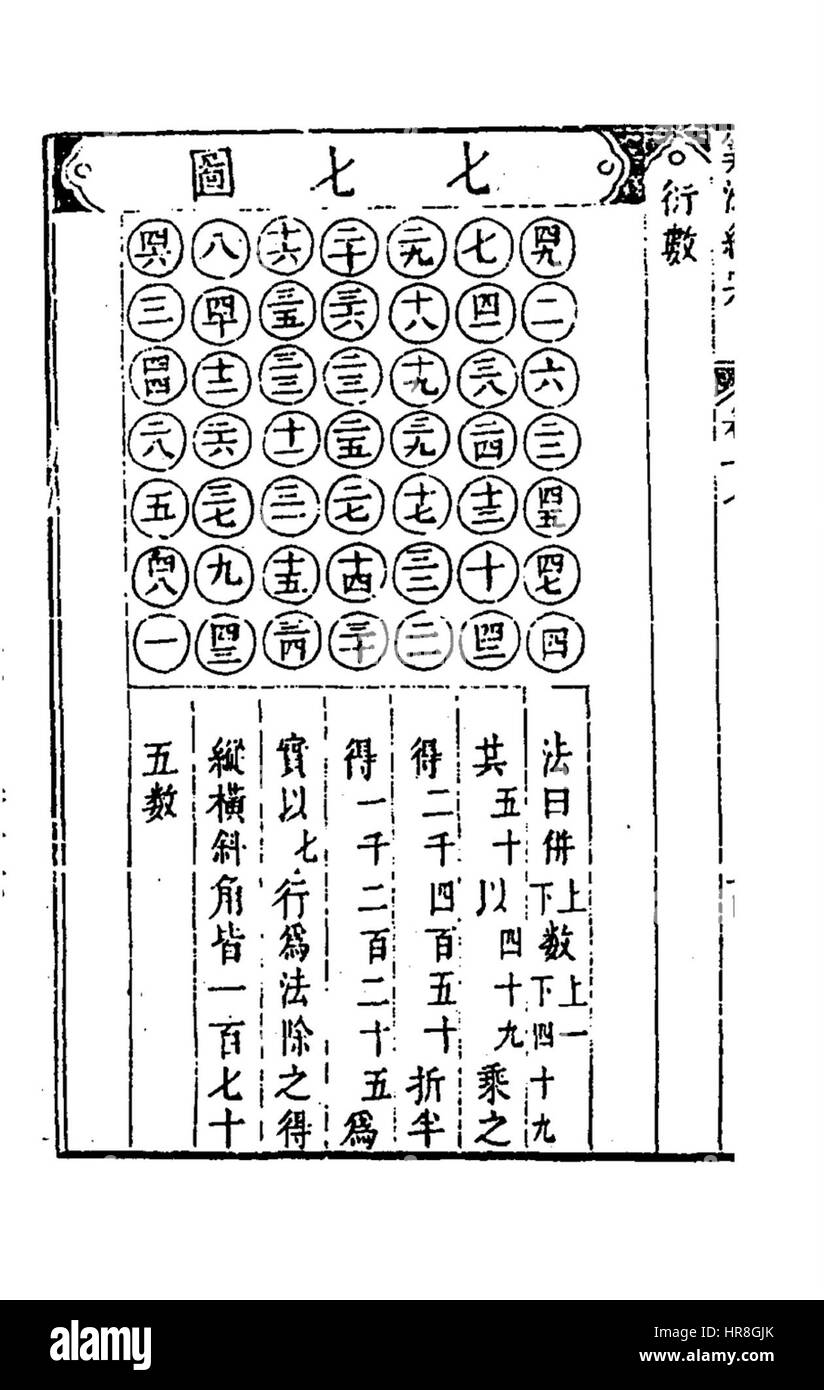 衍數
七七圖
四九 二 六 二二 四五 四七 四
七 四一 三八 二四 十三 十 四二
二九 十八 十九 三九 十七 三二 二一
二十 三六 二三 二五 二七 十四 三十
十六 三五 三三 十一 三一 十五 三四
八 四十 十二 二六 三七 九 四三
四六 三 四四 二八 五 四八 一
法曰併上下數上一下四十九
共五十以四十九乘之
得二千四百五十折半
得一千二百二十五爲
實以七行爲法除之得
縱橫斜角皆一百七十
五數
alamy
alamy
Image ID: HR8GJK
www.alamy.com